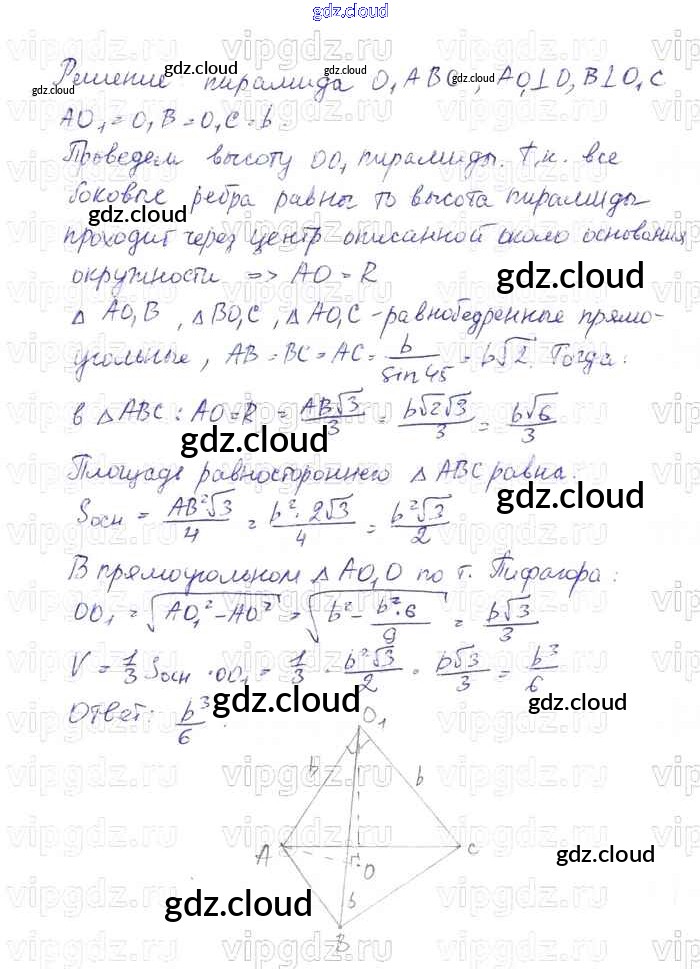 gdz.cloud
Решение пирамида O₁ABC, AO₁⊥O₁B⊥O₁C
AO₁=O₁B=O₁C=b.
Проведем высоту OO₁ пирамиды. Т.к. все
боковые ребра равны то высота пирамиды
проходит через центр описанной около основания
окружности => AO=R
△AO₁B, △BO₁C, △AO₁C - равнобедренные прямо-
угольные, AB=BC=AC= b/sin45 = b√2. Тогда:
в △ABC: AO=R = AB√3/3 = b√2√3/3 = b√6/3
Площадь равностороннего △ABC равна:
Sосн = AB²√3/4 = b²·2√3/4 = b²√3/2
В прямоугольном △AO₁O по т. Пифагора:
OO₁ = √(AO₁²-AO²) = √(b² - b²·6/9) = b√3/3
V = 1/3 Sосн · OO₁ = 1/3 · b²√3/2 · b√3/3 = b³/6
Ответ: b³/6.
O₁
b
b
A
C
O
b
B
gdz.cloud
vipgdz.ru